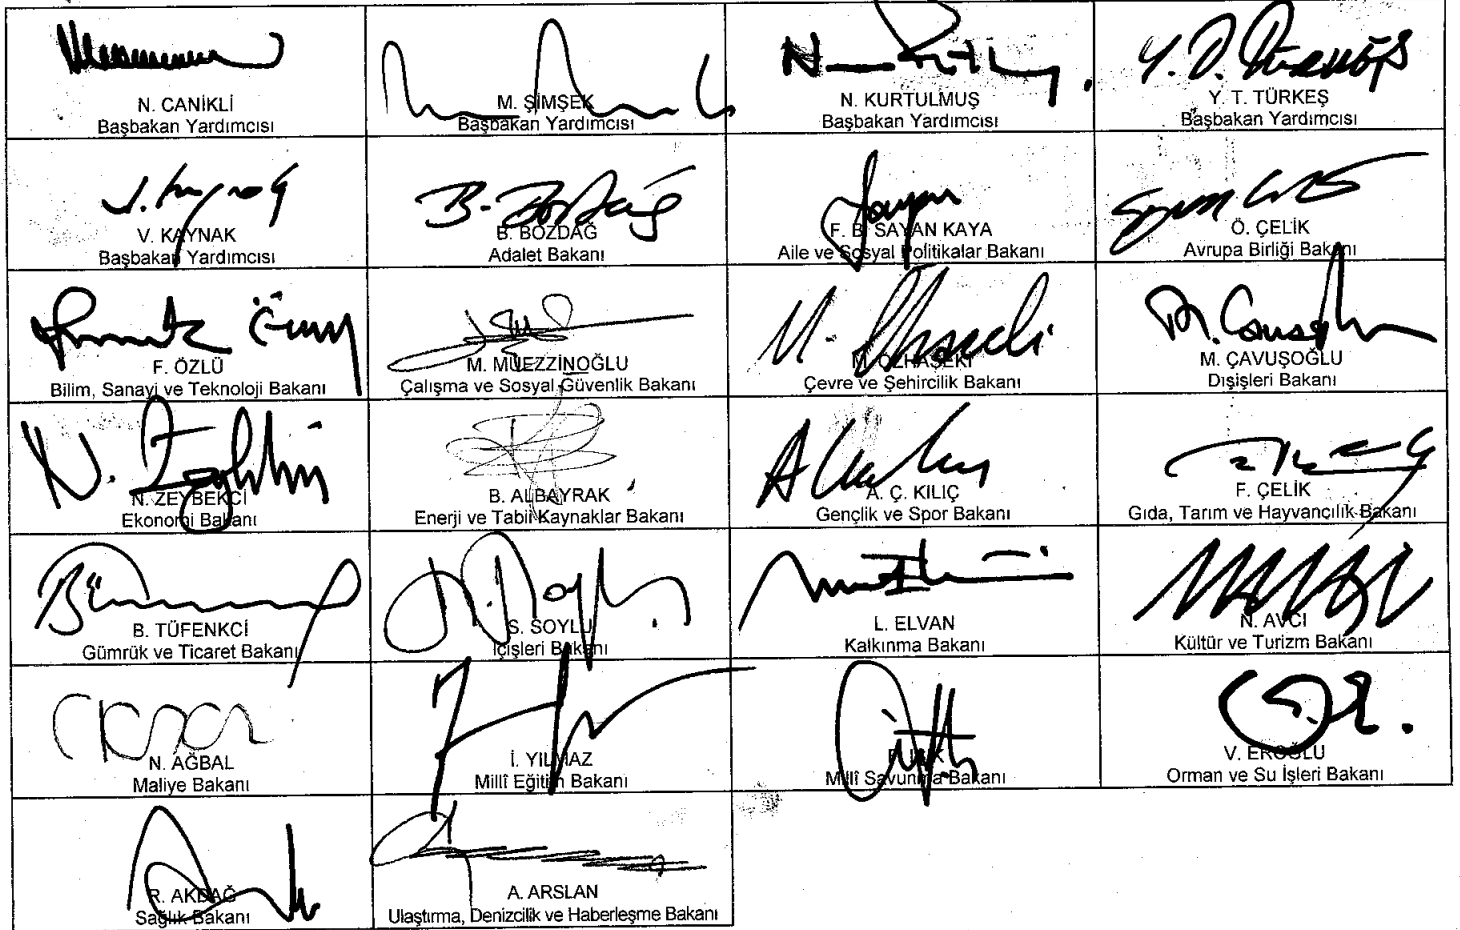 N. CANİKLİ
Başbakan Yardımcısı
M. ŞİMŞEK
Başbakan Yardımcısı
N. KURTULMUŞ
Başbakan Yardımcısı
Y. T. TÜRKEŞ
Başbakan Yardımcısı
V. KAYNAK
Başbakan Yardımcısı
B. BOZDAĞ
Adalet Bakanı
F. B. SAYAN KAYA
Aile ve Sosyal Politikalar Bakanı
Ö. ÇELİK
Avrupa Birliği Bakanı
F. ÖZLÜ
Bilim, Sanayi ve Teknoloji Bakanı
M. MÜEZZİNOĞLU
Çalışma ve Sosyal Güvenlik Bakanı
M. ÖZHASEKİ
Çevre ve Şehircilik Bakanı
M. ÇAVUŞOĞLU
Dışişleri Bakanı
N. ZEYBEKCİ
Ekonomi Bakanı
B. ALBAYRAK
Enerji ve Tabiî Kaynaklar Bakanı
A. Ç. KILIÇ
Gençlik ve Spor Bakanı
F. ÇELİK
Gıda, Tarım ve Hayvancılık Bakanı
B. TÜFENKCİ
Gümrük ve Ticaret Bakanı
S. SOYLU
İçişleri Bakanı
L. ELVAN
Kalkınma Bakanı
N. AVCI
Kültür ve Turizm Bakanı
N. AĞBAL
Maliye Bakanı
İ. YILMAZ
Millî Eğitim Bakanı
Millî Savunma Bakanı
V. EROĞLU
Orman ve Su İşleri Bakanı
R. AKDAĞ
Sağlık Bakanı
A. ARSLAN
Ulaştırma, Denizcilik ve Haberleşme Bakanı